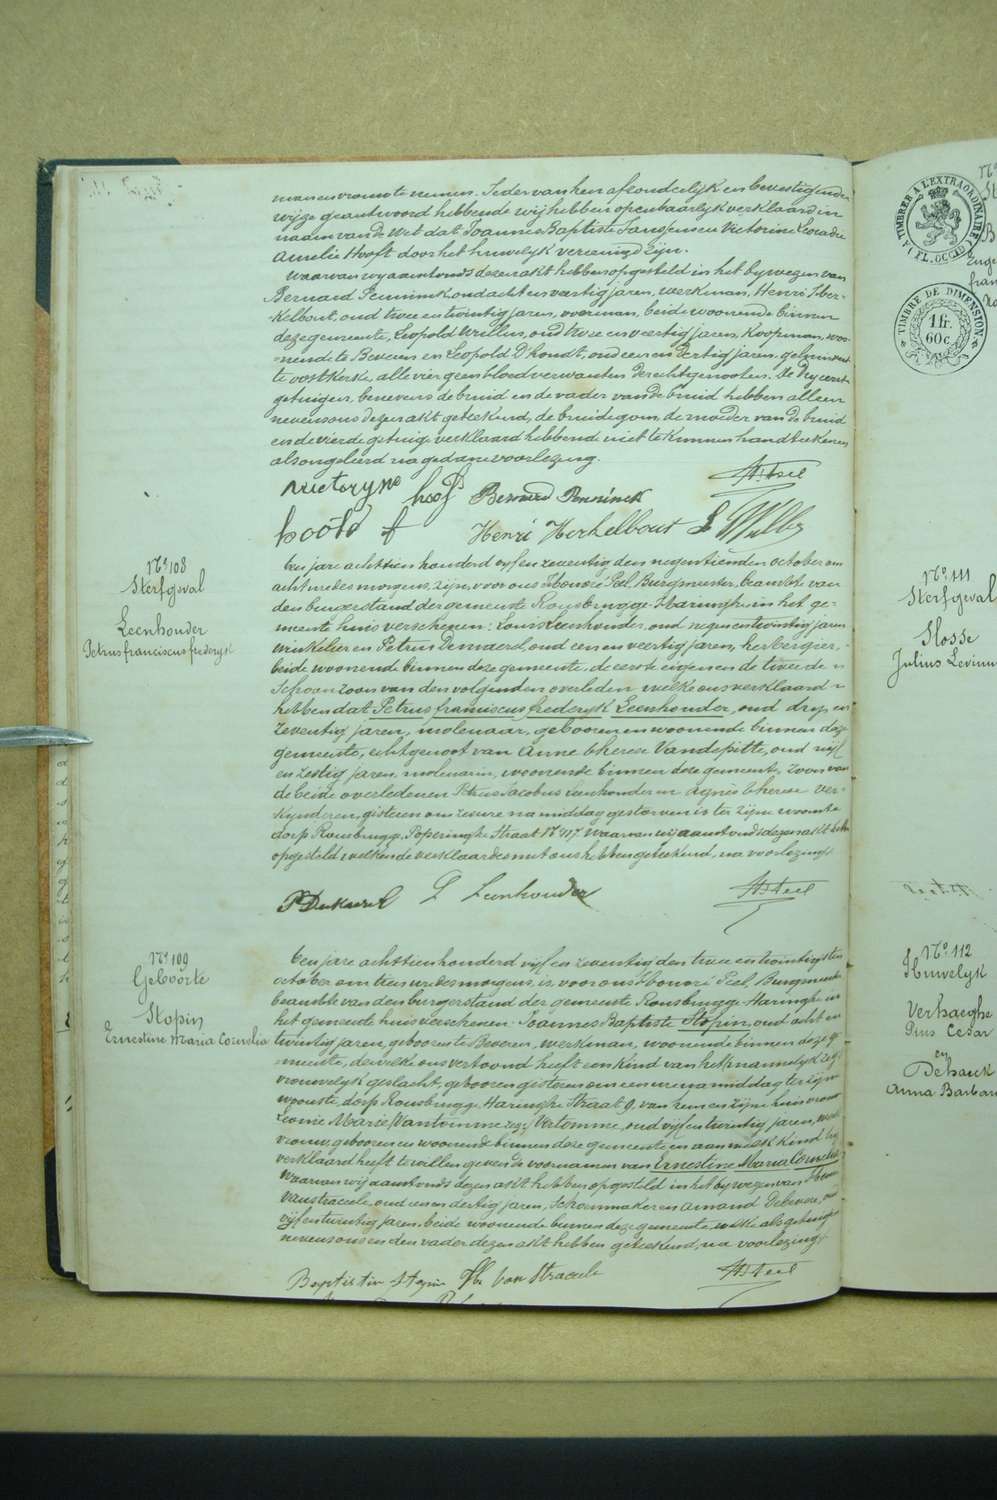 man en vrouw te nemen. Ieder van hen afzonderlijk en bevestigender
wijze geantwoord hebbende wij hebben openbaarlijk verklaard in
naam van de Wet dat Joannes Baptiste Janssens en Victorine Leocadie
Amelie Hooft door het huwelijk vereenigd zijn.
Waarvan wij aanstonds dezen akt hebben opgesteld in het bywezen van
Bernard Penninck, oud acht en veertig jaren, werkman, Henri Her-
kelbout, oud twee en twintig jaren, voerman, beide woonende binnen
deze gemeente, Leopold Willen, oud twee en veertig jaren, Koopman, woo-
nende te Beveren en Leopold D'hondt, oud een en dertig jaren,
te oostkerke, alle vier geen bloedverwanten der echtgenooten. De dry eerste
getuigen, benevens de bruid en de vader van de bruid hebben alleen
nevens ons dezen akt geteekend, de bruidegom, de moeder van de bruid
en de vierde getuige verklaard hebbende niet te kunnen handteekenen
als ongeleerd na gedane voorlezing.
hooft Bernard Penninck H. Peel
Henri Herkelbout L Wille
Nr 108
Sterfgeval
Leenhouder
Petrus franciscus frederyk
Ten jare achttien honderd vyf en zeventig den negentienden october om
acht ure des morgens, zijn, voor ons Honoré Peel, Burgmeester, beambte van
den burgerstand der gemeente Rousbrugge-Haringhe in het ge-
meente huis verschenen: Louis Leenhouder, oud negen en twintig jaren
winkelier en Petrus Demaerel, oud een en veertig jaren, herbergier,
beide woonende binnen deze gemeente, de eerste eigen en de tweede
schoonzoon van den volgenden overleden welke ons verklaard
hebben dat Petrus franciscus frederyk Leenhouder, oud dry en
zeventig jaren, molenaar, geboren en woonende binnen deze
gemeente, echtgenoot van Anne Therese Vandepitte, oud vijf
en zestig jaren, molenarin, woonende binnen deze gemeente, zoon van
de beide overledenen Petrus Jacobus Leenhouder en Agnès Therese Ver-
, gisteren om zeven ure na middag gestorven is ter zijne woonste
dorp Rousbrugge, Poperinghe Straat Nr 117. Waarvan wij aanstonds dezen akt hebben
opgesteld welken de verklaarders met ons hebben geteekend, na voorlezing.
L Leenhouder H. Peel
Nr 109
Geboorte
Stopin
Ernestine Maria Cornelia
Ten jare achttien honderd vyf en zeventig den twee en twintigsten
october om tien ure des morgens, is, voor ons Honoré Peel, Burgmeester
beambte van den burgerstand der gemeente Rousbrugge-Haringhe in
het gemeente huis verschenen: Joannes Baptiste Stopin, oud acht en
twintig jaren, geboren te Beveren, werkman, woonende binnen deze ge-
meente, dewelke ons vertoond heeft een kind van het
vrouwelyk geslacht, geboren gisteren om een ure na middag ter zijne
woonste, dorp Rousbrugge, Haringhe Straat 9, van hem en zijne huisvrouw
Leonie Marie Vantomme Verlomme, oud vijf en twintig jaren, werk-
vrouw, geboren en woonende binnen deze gemeente en aan welk kind hij
verklaard heeft te willen geven de voornamen van Ernestine Maria Cornelia
waarvan wij aanstonds dezen akt hebben opgesteld in het bywezen van
Vanstraceele, oud een en dertig jaren, schoenmaker en Amand Debeuve, oud
vijf en twintig jaren, beide woonende binnen deze gemeente, welke als getuigen
nevens ons en den vader dezen akt hebben geteekend, na voorlezing.
Baptistin Stopin Van Straceele H. Peel
TIMBRER A L'EXTRAORDINAIRE
(FL. OCCID.)
TIMBRE DE DIMENSION
1 fr.
60 c.
No 111
Sterfgeval
Slosse
Julius Levinus
No 112
Huwelyk
Verhaeghe
Pius Cesar
en
Dehauck
Anna Barbara